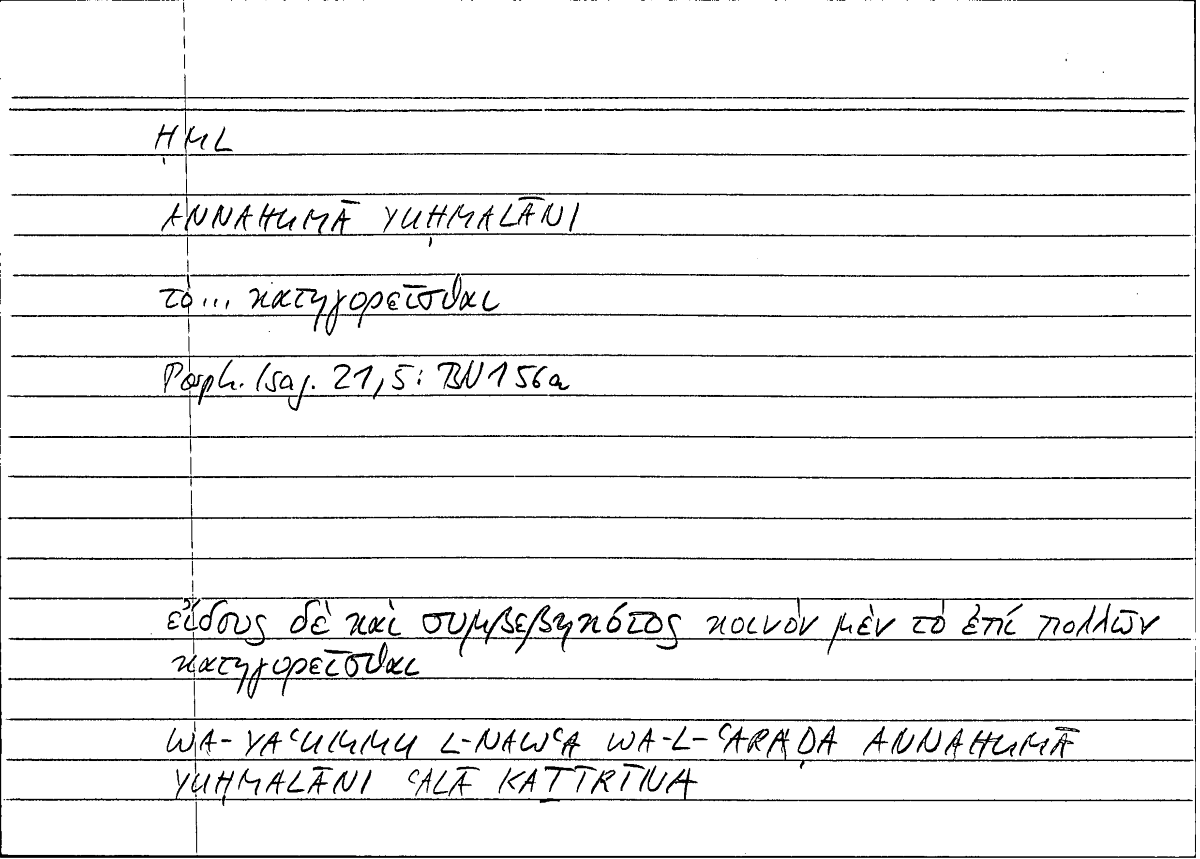 ḤML
ANNAHUMĀ YUḤMALĀNI
τὸ... κατηγορεῖσθαι
Porph. Isag. 21,5: BN156a
εἴδους δὲ καὶ συμβεβηκότος κοινὸν μὲν τὸ ἐπὶ πολλῶν
κατηγορεῖσθαι
WA-YAʿUMMU L-NAWʿA WA-L-ʿARAḌA ANNAHUMĀ
YUḤMALĀNI ʿALĀ KAṮĪRĪNA